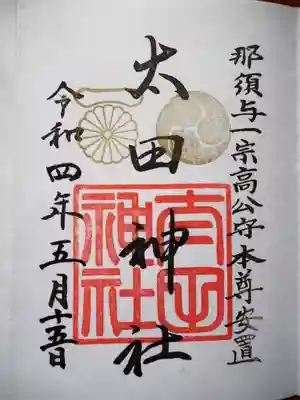 那須与一宗高公守本尊安置
太田神社
太田
神社
令和四年五月十五日